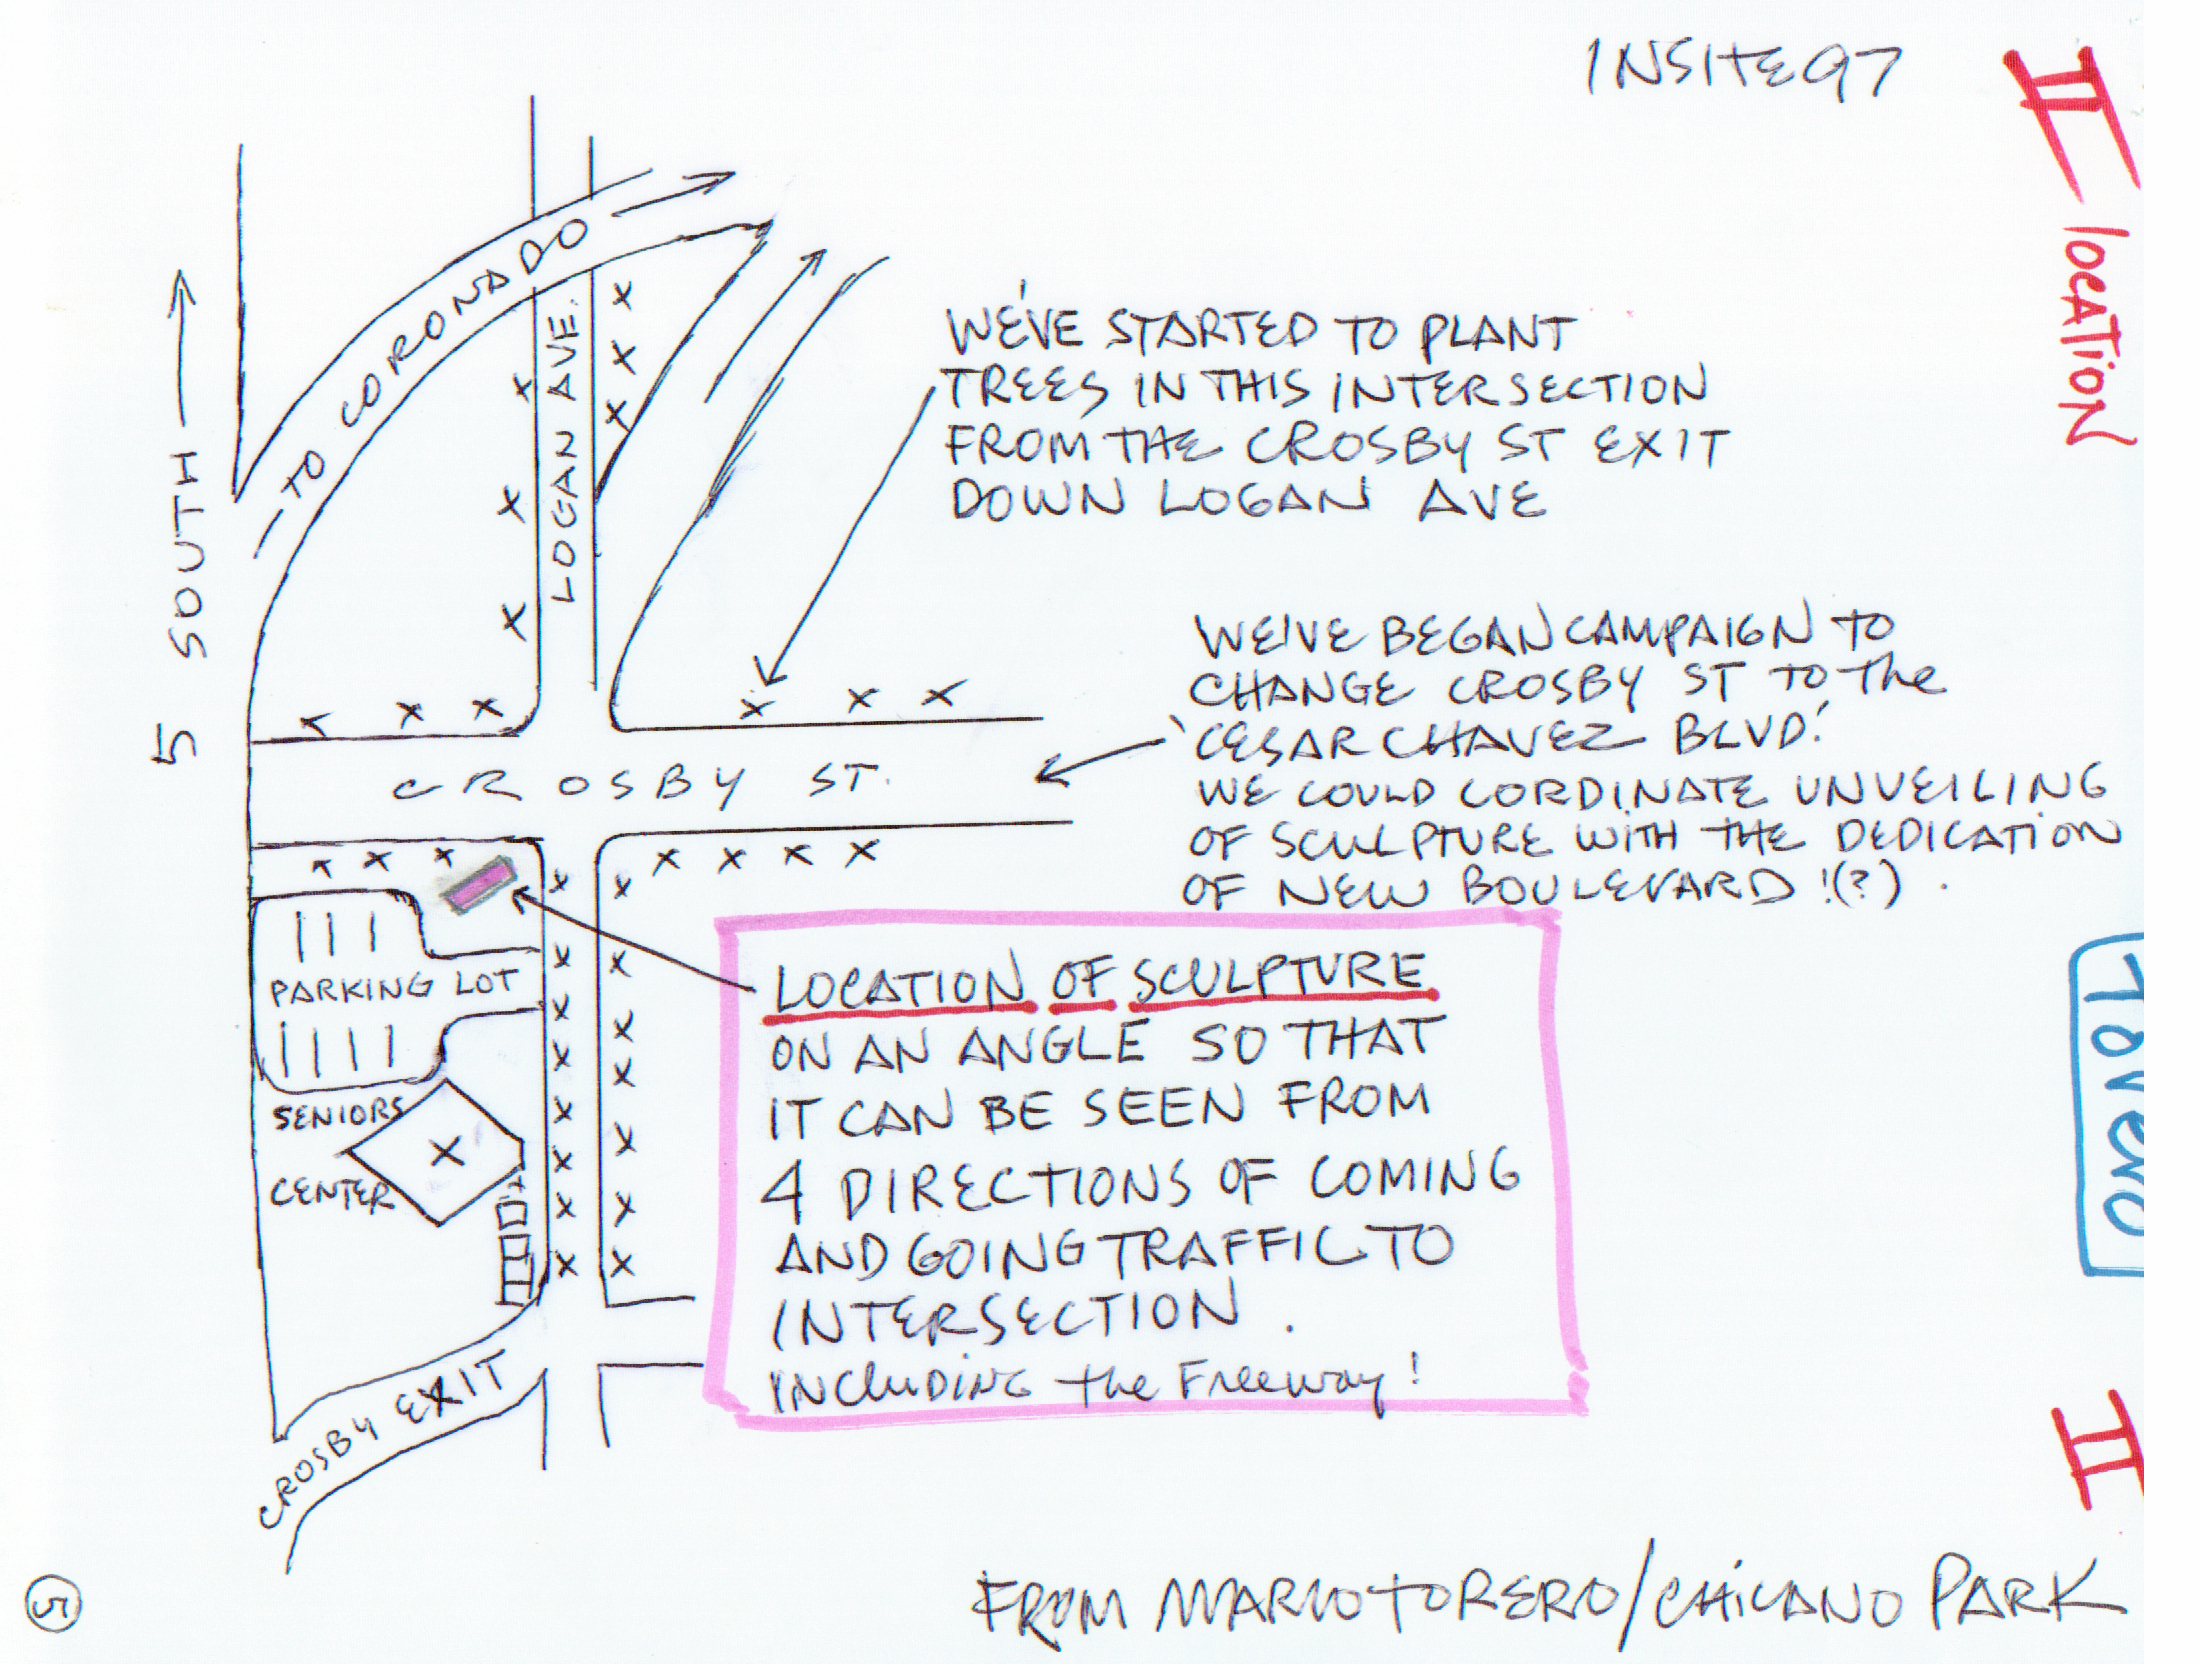 INSITE97
II location
TO CORONADO
LOGAN AVE.
5 SOUTH
WE'VE STARTED TO PLANT
TREES IN THIS INTERSECTION
FROM THE CROSBY ST EXIT
DOWN LOGAN AVE
WE'VE BEGAN CAMPAIGN TO
CHANGE CROSBY ST TO the
'CESAR CHAVEZ BLVD!
WE COULD CORDINATE UNVEILING
OF SCULPTURE WITH THE DEDICATION
OF NEW BOULEVARD !(?).
CROSBY ST.
LOCATION OF SCULPTURE
ON AN ANGLE SO THAT
IT CAN BE SEEN FROM
4 DIRECTIONS OF COMING
AND GOING TRAFFIC TO
INTERSECTION.
INCluDING the Freeway!
PARKING LOT
SENIORS
CENTER
CROSBY EXIT
TOrERO
II
FROM MARIO TORERO/CHICANO PARK
5